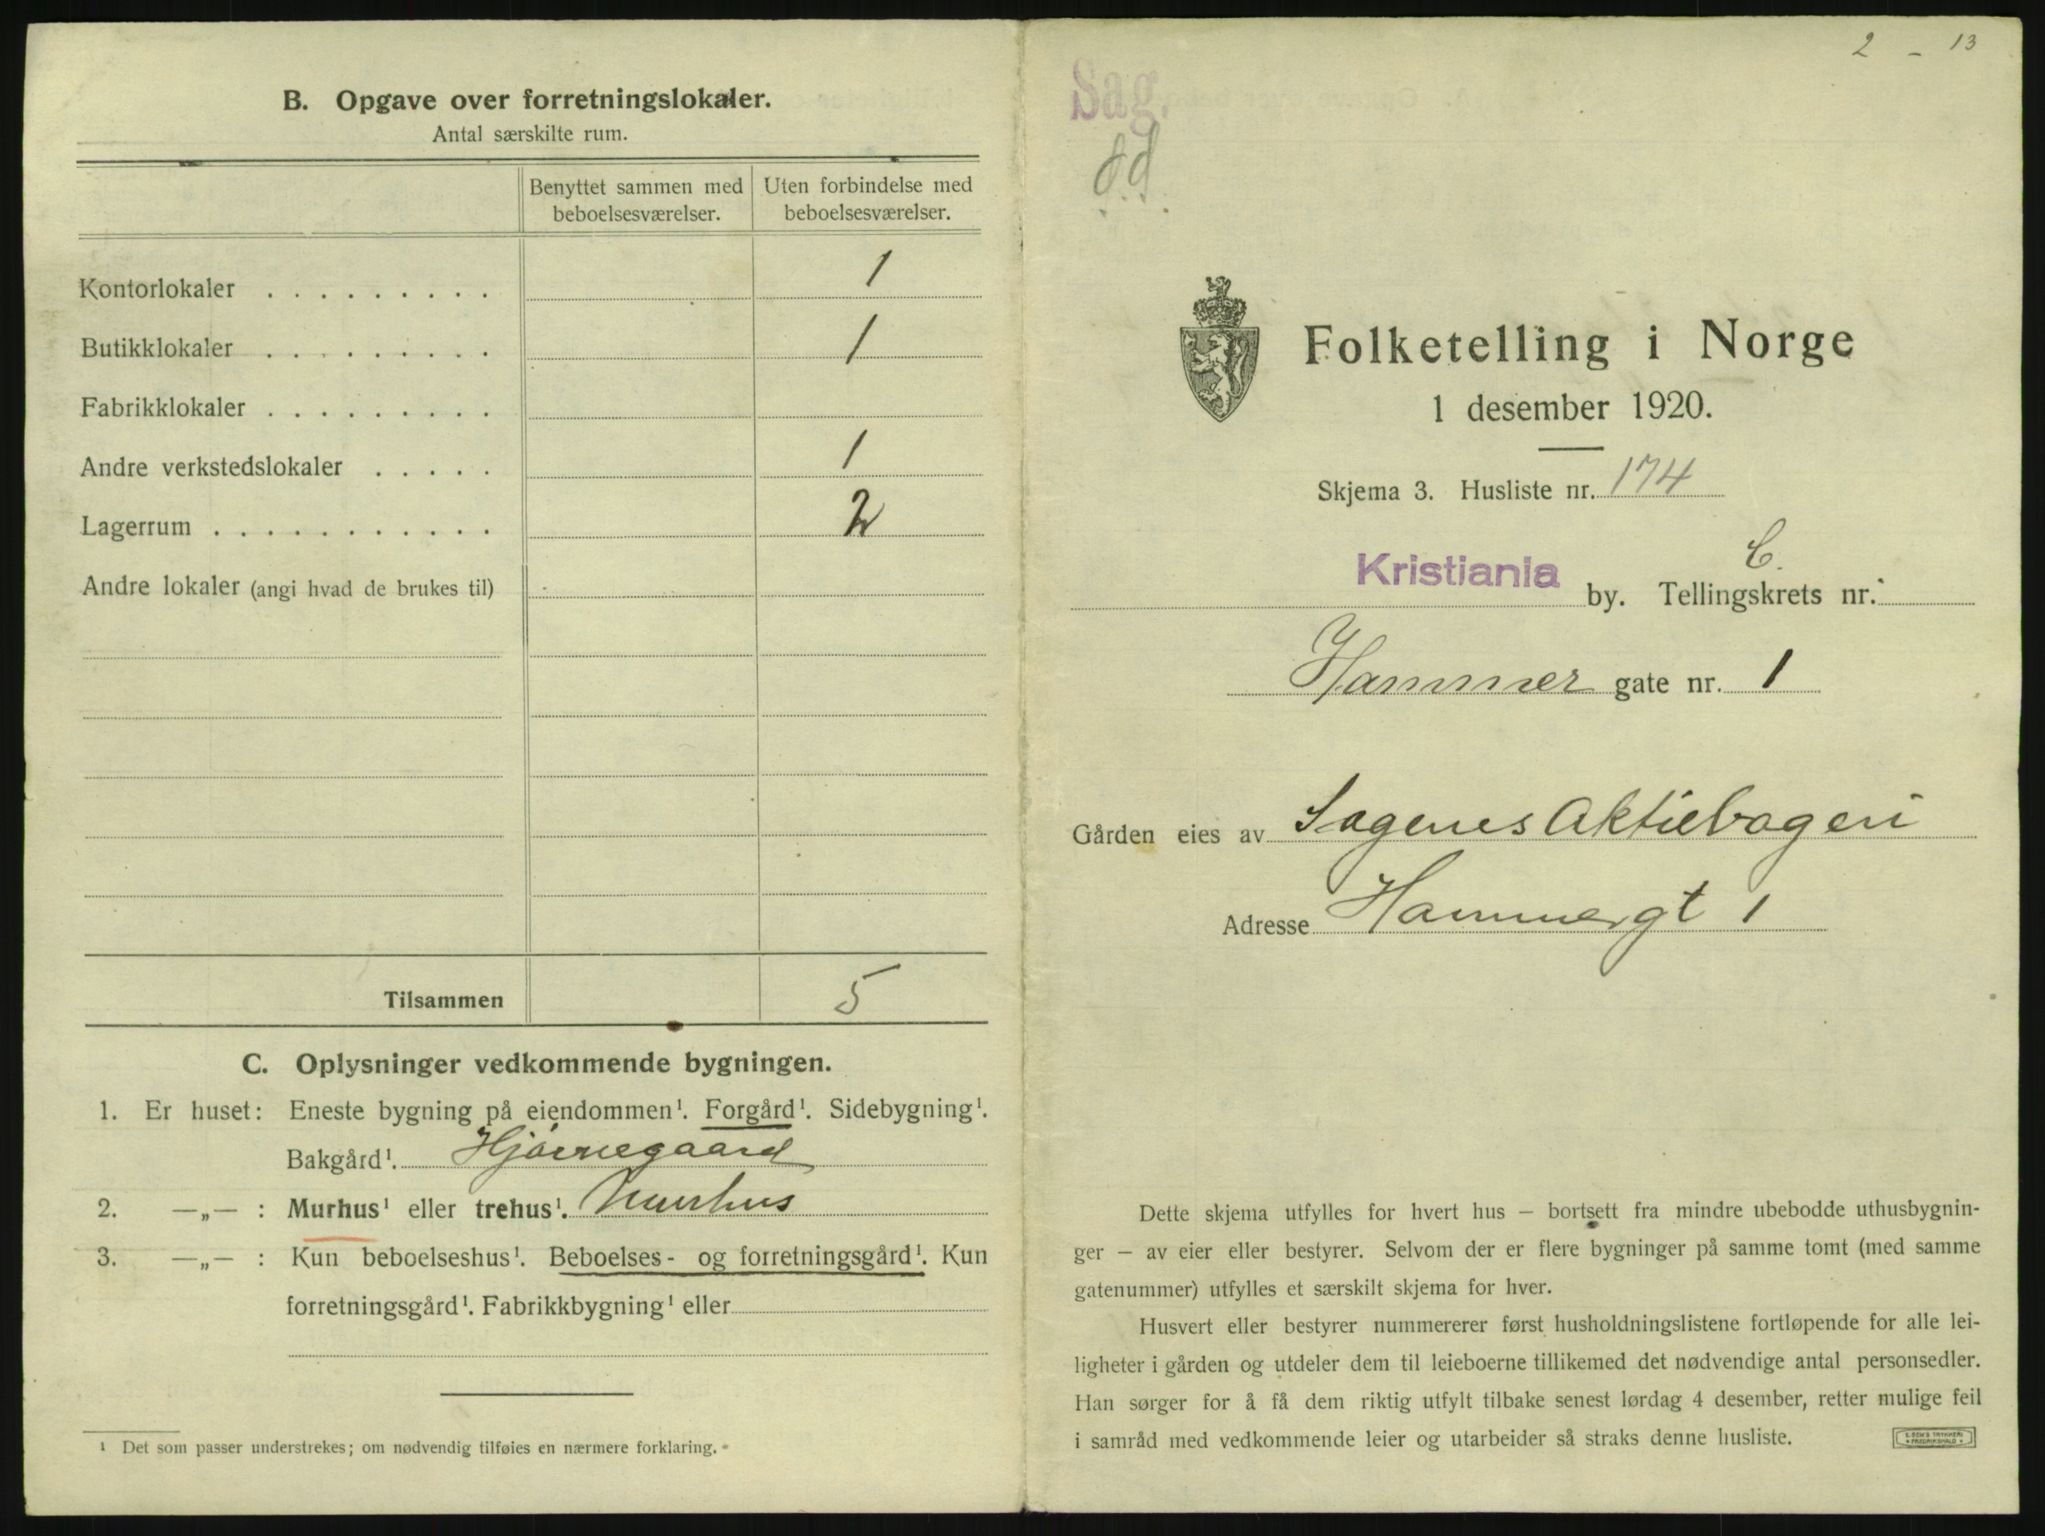 B. Opgave over forretningslokaler.
Antal særskilte rum.
Benyttet sammen med beboelsesværelser.
Uten forbindelse med beboelsesværelser.
Kontorlokaler . . . . . . . . . 1
Butikklokaler . . . . . . . . . 1
Fabrikklokaler . . . . . . . . .
Andre verkstedslokaler . . . . . 1
Lagerrum . . . . . . . . . . . 2
Andre lokaler (angi hvad de brukes til)
Tilsammen 5
C. Oplysninger vedkommende bygningen.
1. Er huset: Eneste bygning på eiendommen¹. Forgård¹. Sidebygning¹.
Bakgård¹. Hjørnegaard
2. —„— : Murhus¹ eller trehus¹. Murhus
3. —„— : Kun beboelseshus¹. Beboelses- og forretningsgård¹. Kun
forretningsgård¹. Fabrikkbygning¹ eller
¹ Det som passer understrekes; om nødvendig tilføies en nærmere forklaring.
2 - 13
Sag.
Folketelling i Norge
1 desember 1920.
Skjema 3. Husliste nr. 174
Kristiania by. Tellingskrets nr. C.
Hammer gate nr. 1
Gården eies av Sagenes Aktiebageri
Adresse Hammergt 1
Dette skjema utfylles for hvert hus – bortsett fra mindre ubebodde uthusbygnin-
ger – av eier eller bestyrer. Selvom der er flere bygninger på samme tomt (med samme
gatenummer) utfylles et særskilt skjema for hver.
Husvert eller bestyrer nummererer først husholdningslistene fortløpende for alle lei-
ligheter i gården og utdeler dem til leieboerne tillikemed det nødvendige antal personsedler.
Han sørger for å få dem riktig utfylt tilbake senest lørdag 4 desember, retter mulige feil
i samråd med vedkommende leier og utarbeider så straks denne husliste.